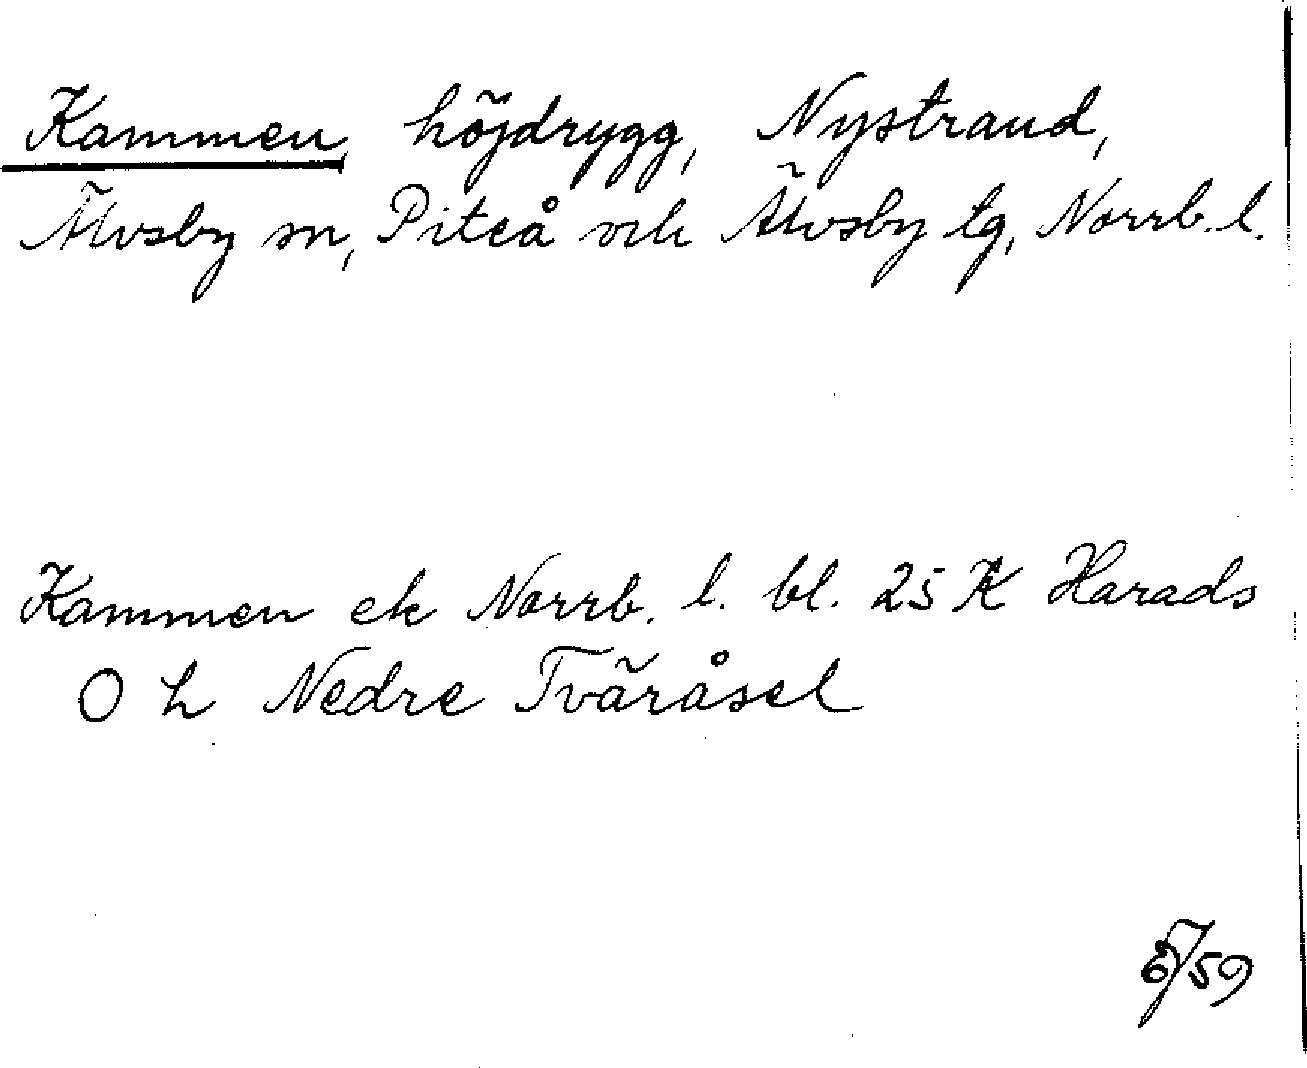 Kammen, höjdrygg, Nystrand,
Älvsby sn, Piteå och Älvsby tg, Norrb. l.
Kammen ek Norrb. l. bl. 25 K Harads
O h Nedre Tväråsel
/59